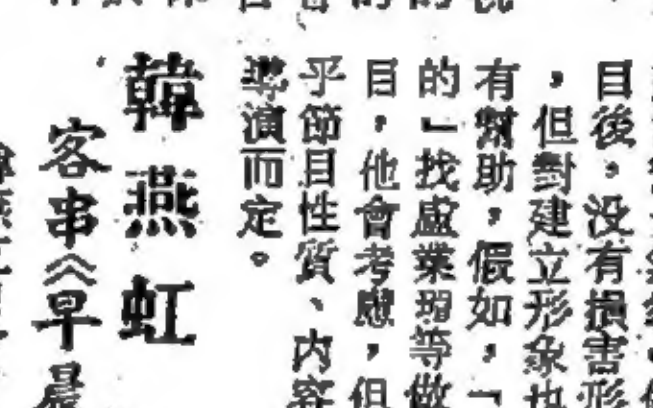 目後，没有損害形
，但對建立形象也
有幫助，假如，「
的」找盧業瑂等做
目，他會考慮，但
乎節目性質、内容
導演而定。
韓燕虹
客串《早晨